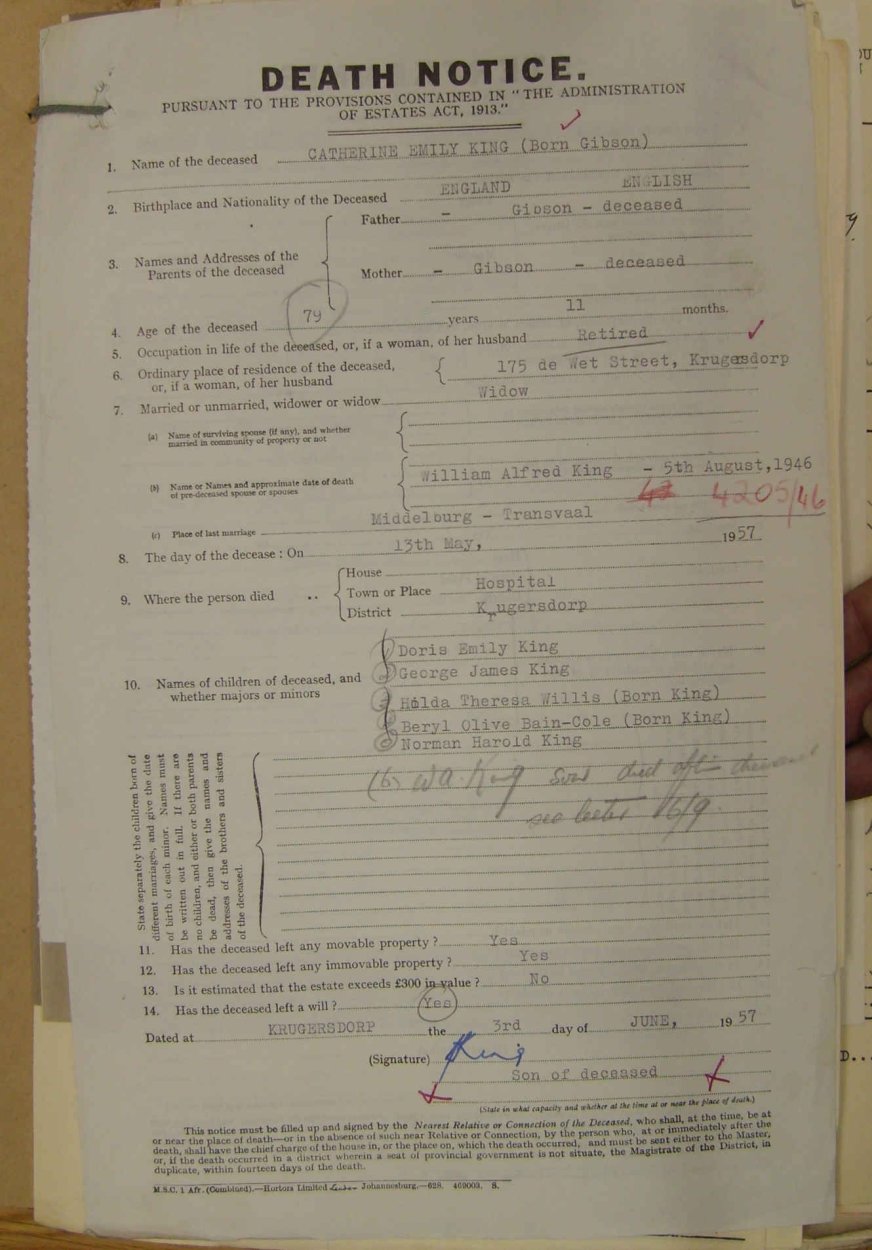 DEATH NOTICE.
PURSUANT TO THE PROVISIONS CONTAINED IN "THE ADMINISTRATION
OF ESTATES ACT, 1913."
1. Name of the deceased CATHERINE EMILY KING (Born Gibson)
2. Birthplace and Nationality of the Deceased ENGLAND ENGLISH
3. Names and Addresses of the Parents of the deceased
Father - Gibson - deceased
Mother - Gibson - deceased
4. Age of the deceased 79 years 11 months.
5. Occupation in life of the deceased, or, if a woman, of her husband Retired
6. Ordinary place of residence of the deceased,
or, if a woman, of her husband 175 de Wet Street, Krugersdorp
7. Married or unmarried, widower or widow Widow
(a) Name of surviving spouse (if any), and whether
married in community of property or not
(b) Name or Names and approximate date of death
of pre-deceased spouse or spouses
William Alfred King - 5th August, 1946
4205/46
(c) Place of last marriage Middelburg - Transvaal
8. The day of the decease : On 13th May, 1957
9. Where the person died ..
House
Town or Place Hospital
District Krugersdorp
10. Names of children of deceased, and
whether majors or minors
Doris Emily King
George James King
Hilda Theresa Willis (Born King)
Beryl Olive Bain-Cole (Born King)
Norman Harold King
(6) W A King died
see letter 16/9.
State separately the children born of
different marriages, and give the date
of birth of each minor. Names must
be written out in full. If there are
no children, and either or both parents
be dead, then give the names and
addresses of the brothers and sisters
of the deceased.
11. Has the deceased left any movable property ? Yes
12. Has the deceased left any immovable property ? Yes
13. Is it estimated that the estate exceeds £300 in value ? No
14. Has the deceased left a will ? Yes
Dated at KRUGERSDORP the 3rd day of JUNE, 1957
(Signature) King
Son of deceased
(State in what capacity and whether at the time at or near the place of death.)
This notice must be filled up and signed by the Nearest Relative or Connection of the Deceased, who shall, at the time, be at
or near the place of death—or in the absence of such near Relative or Connection, by the person who, at or immediately after the
death, shall have the chief charge of the house in, or the place on, which the death occurred, and must be sent either to the Master,
or, if the death occurred in a district wherein a seat of provincial government is not situate, the Magistrate of the District, in
duplicate, within fourteen days of the death.
M.S.C. 1 Afr. (Combined).—Hortors Limited Johannesburg.—628. 469003. S.
D...